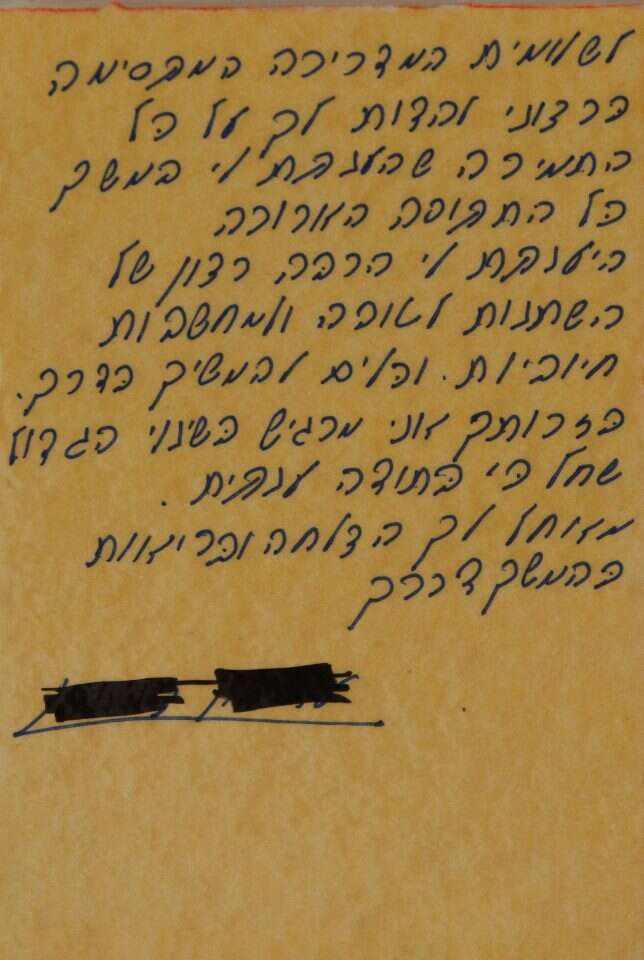 לשלומית המדריכה המקסימה
ברצוני להודות לך על כל
התמיכה שהענקת לי במשך
כל התקופה הארוכה
היענקת לי הרבה רצון של
השתנות לטובה ולמחשבות
חיוביות. וכלים להמשיך בדרך.
בזכותך אני מרגיש בשינוי הגדול
שחל בי בתודה ענקית.
מאוחל לך הצלחה ובריאות
בהמשך דרכך